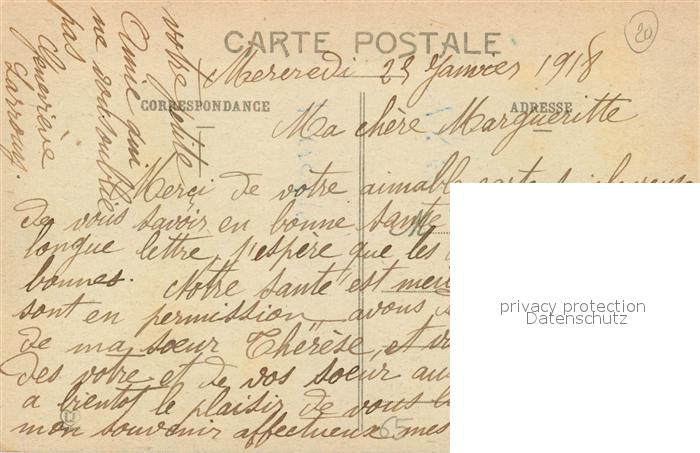 CARTE POSTALE
20
Mercredi 23 Janvier 1918
CORRESPONDANCE
ADRESSE
Ma chère Margueritte
Merci de votre aimable carte
de vous savoir en bonne santé
longue lettre, j'espère que les
bonnes. Notre santé est
sont en permission avons
de ma soeur Thérèse, et
des votre et de vos soeur
a bientot le plaisir de vous
mon souvenir affectueux mes
65
votre petite
Amie qui
ne vous oublie
pas
Geneviève
Larrouy.
privacy protection
Datenschutz